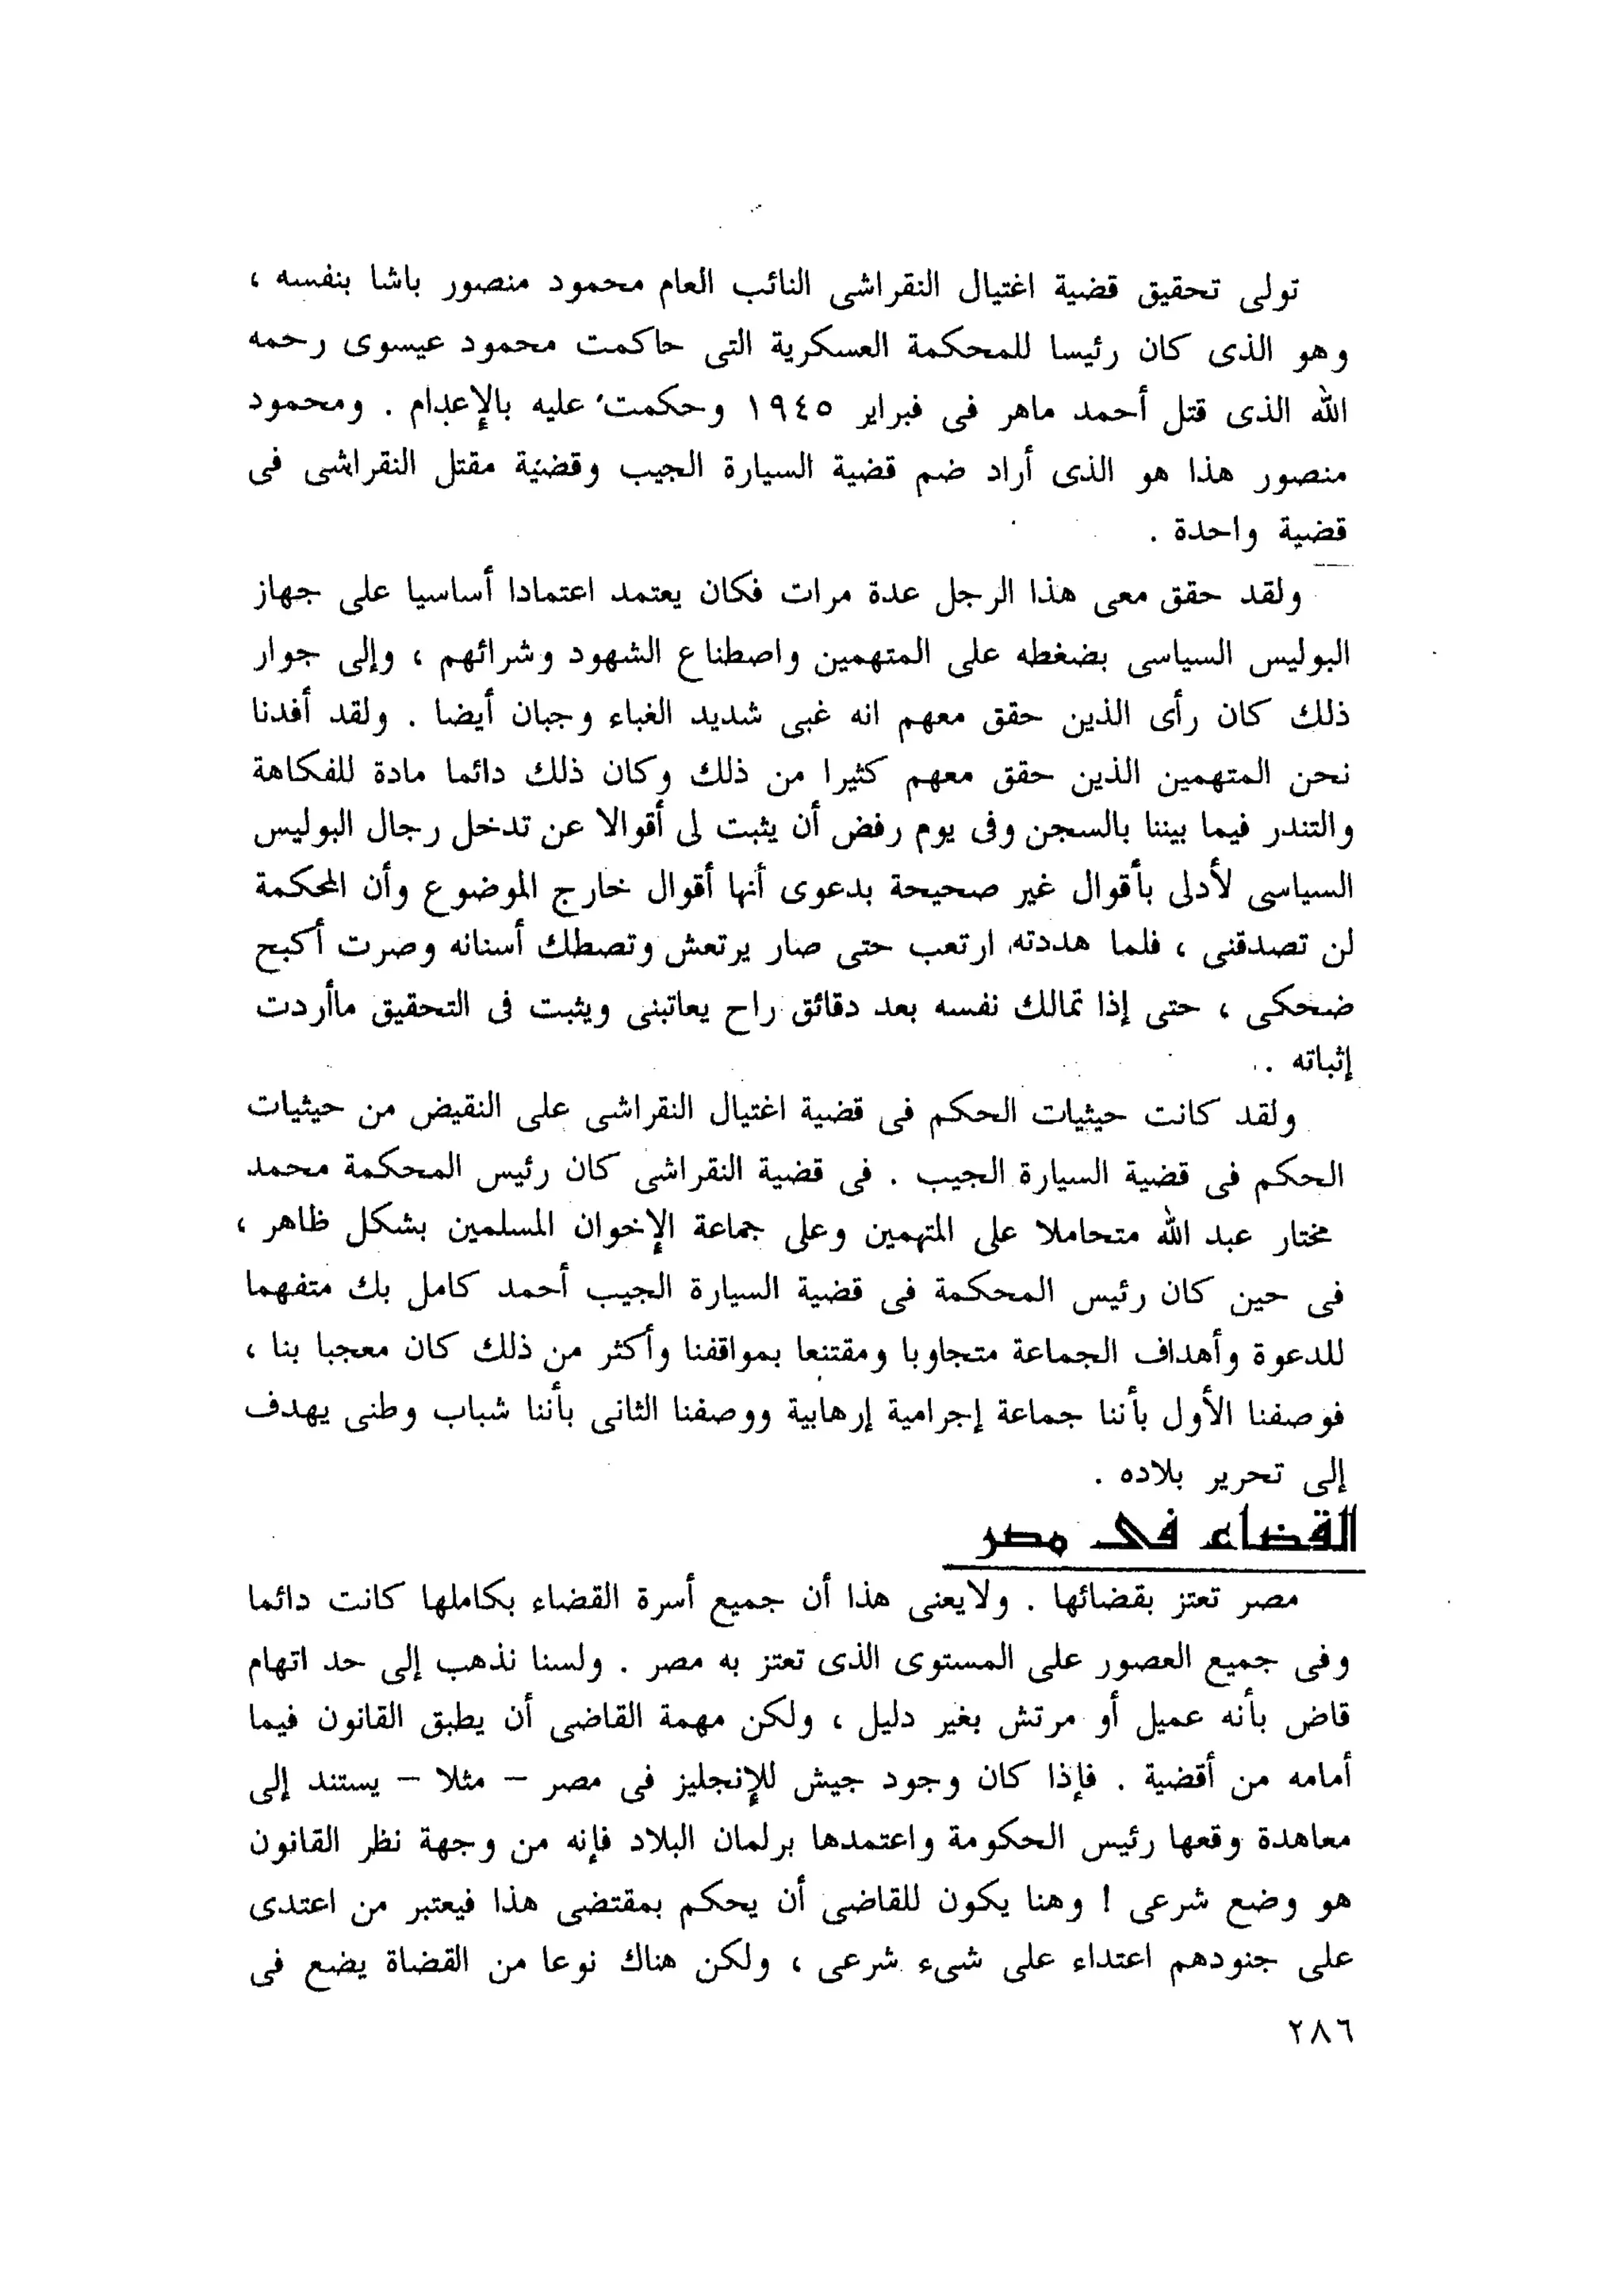 تولى تحقيق قضية اغتيال النقراشى النائب العام محمود منصور باشا بنفسه ،
وهو الذى كان رئيسا للمحكمة العسكرية التى حاكمت محمود عيسوى رحمه
الله الذى قتل أحمد ماهر فى فبراير ١٩٤٥ وحكمت عليه بالإعدام . ومحمود
منصور هذا هو الذى أراد ضم قضية السيارة الجيب وقضية مقتل النقراشى فى
قضية واحدة .
ولقد حقق معى هذا الرجل عدة مرات فكان يعتمد اعتمادا أساسيا على جهاز
البوليس السياسى بضغطه على المتهمين واصطناع الشهود وشرائهم ، وإلى جوار
ذلك كان رأى الذين حقق معهم انه غبى شديد الغباء وجبان أيضا . ولقد أفدنا
نحن المتهمين الذين حقق معهم كثيرا من ذلك وكان ذلك دائما مادة للفكاهة
والتندر فيما بيننا بالسجن وفى يوم رفض أن يثبت لى أقوالا عن تدخل رجال البوليس
السياسى لأدلى بأقوال غير صحيحة بدعوى أنها أقوال خارج الموضوع وأن المحكمة
لن تصدقنى ، فلما هددته ارتعب حتى صار يرتعش وتصطك أسنانه وصرت أكبح
ضحكى ، حتى إذا تمالك نفسه بعد دقائق راح يعاتبنى ويثبت فى التحقيق ماأردت
إثباته ..
ولقد كانت حيثيات الحكم فى قضية اغتيال النقراشى على النقيض من حيثيات
الحكم فى قضية السيارة الجيب . فى قضية النقراشى كان رئيس المحكمة محمد
مختار عبد الله متحاملا على المتهمين وعلى جماعة الإخوان المسلمين بشكل ظاهر ،
فى حين كان رئيس المحكمة فى قضية السيارة الجيب أحمد كامل بك متفهما
للدعوة وأهداف الجماعة متجاوبا ومقتنعا بمواقفنا وأكثر من ذلك كان معجبا بنا ،
فوصفنا الأول بأننا جماعة إجرامية إرهابية ووصفنا الثانى بأننا شباب وطنى يهدف
إلى تحرير بلاده .
القضاء فى مصر
مصر تعتز بقضائها . ولايعنى هذا أن جميع أسرة القضاء بكاملها كانت دائما
وفى جميع العصور على المستوى الذى تعتز به مصر . ولسنا نذهب إلى حد اتهام
قاض بأنه عميل أو مرتش بغير دليل ، ولكن مهمة القاضى أن يطبق القانون فيما
أمامه من أقضية . فإذا كان وجود جيش للإنجليز فى مصر – مثلا – يستند إلى
معاهدة وقعها رئيس الحكومة واعتمدها برلمان البلاد فإنه من وجهة نظر القانون
هو وضع شرعى ! وهنا يكون للقاضى أن يحكم بمقتضى هذا فيعتبر من اعتدى
على جنودهم اعتداء على شىء شرعى ، ولكن هناك نوعا من القضاة يضع فى
٢٨٦